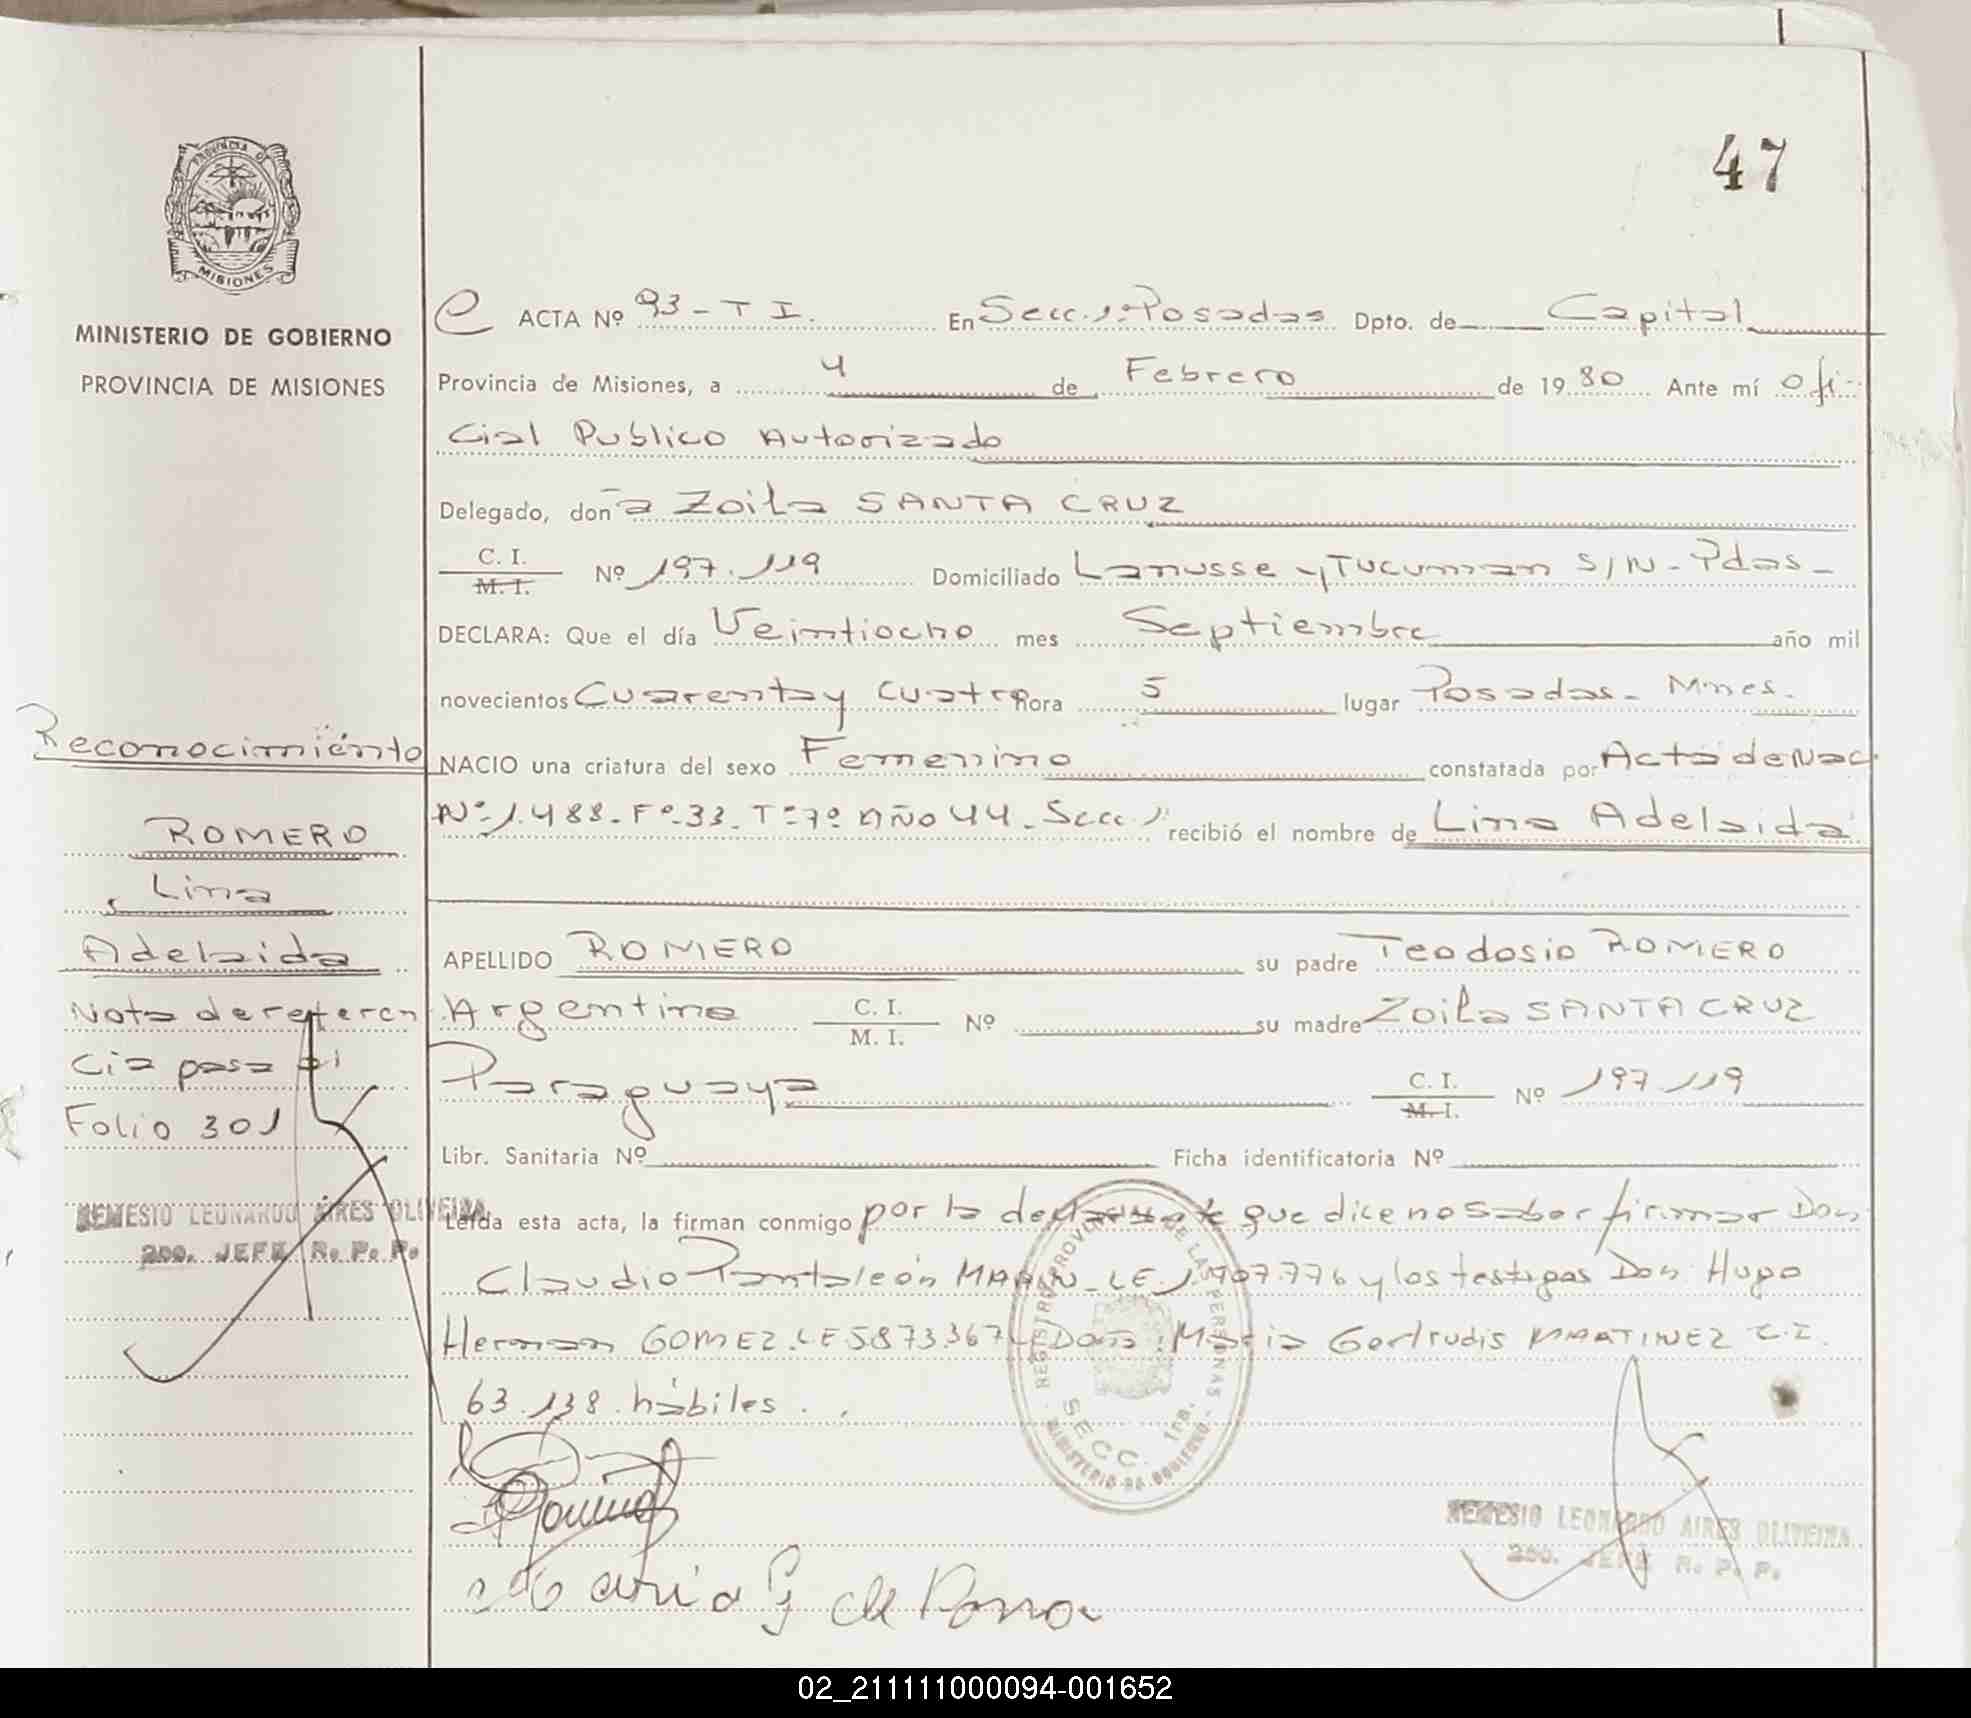 47
PROVINCIA DE
MISIONES
MINISTERIO DE GOBIERNO
PROVINCIA DE MISIONES
ACTA Nº 93 - T I. En Secc. 1ª Posadas Dpto. de Capital
Provincia de Misiones, a 4 de Febrero de 1980 Ante mí ofi-
cial Publico Autorizado
Delegado, doña Zoila SANTA CRUZ
C. I.
M. I. Nº 197.119 Domiciliado Lanusse y Tucuman S/N - Pdas -
DECLARA: Que el día Veintiocho mes Septiembre año mil
novecientos Cuarenta y cuatro hora 5 lugar Posadas - Mnes.
NACIO una criatura del sexo Femenino constatada por Acta de Nac
Nº 1.488 - Fº 33 - Tº 7º Año 44 - Secc 1ª recibió el nombre de Lina Adelaida
APELLIDO ROMERO su padre Teodosio ROMERO
Argentino C. I.
M. I. Nº su madre Zoila SANTA CRUZ
Paraguaya C. I.
M. I. Nº 197.119
Libr. Sanitaria Nº Ficha identificatoria Nº
Leída esta acta, la firman conmigo por la declarante que dice no saber firmar Don
Claudio Pantaleón MARIN - LE 1.907.776 y los testigos Don Hugo
Herman GOMEZ. LE 5873.367 y Doña Maria Gertrudis MARTINEZ C.I.
63.138 hábiles.
Maria G de
Reconocimiento
ROMERO
Lina
Adelaida
Nota de referen
cia pasa al
Folio 301
NEMESIO LEONARDO AIRES OLIVEIRA
2do. JEFE R. P. P.
REGISTRO PROVINCIAL DE LAS PERSONAS
SECC. 1ra.
MINISTERIO DE GOBIERNO
NEMESIO LEONARDO AIRES OLIVEIRA
2do. JEFE R. P. P.
02_211111000094-001652